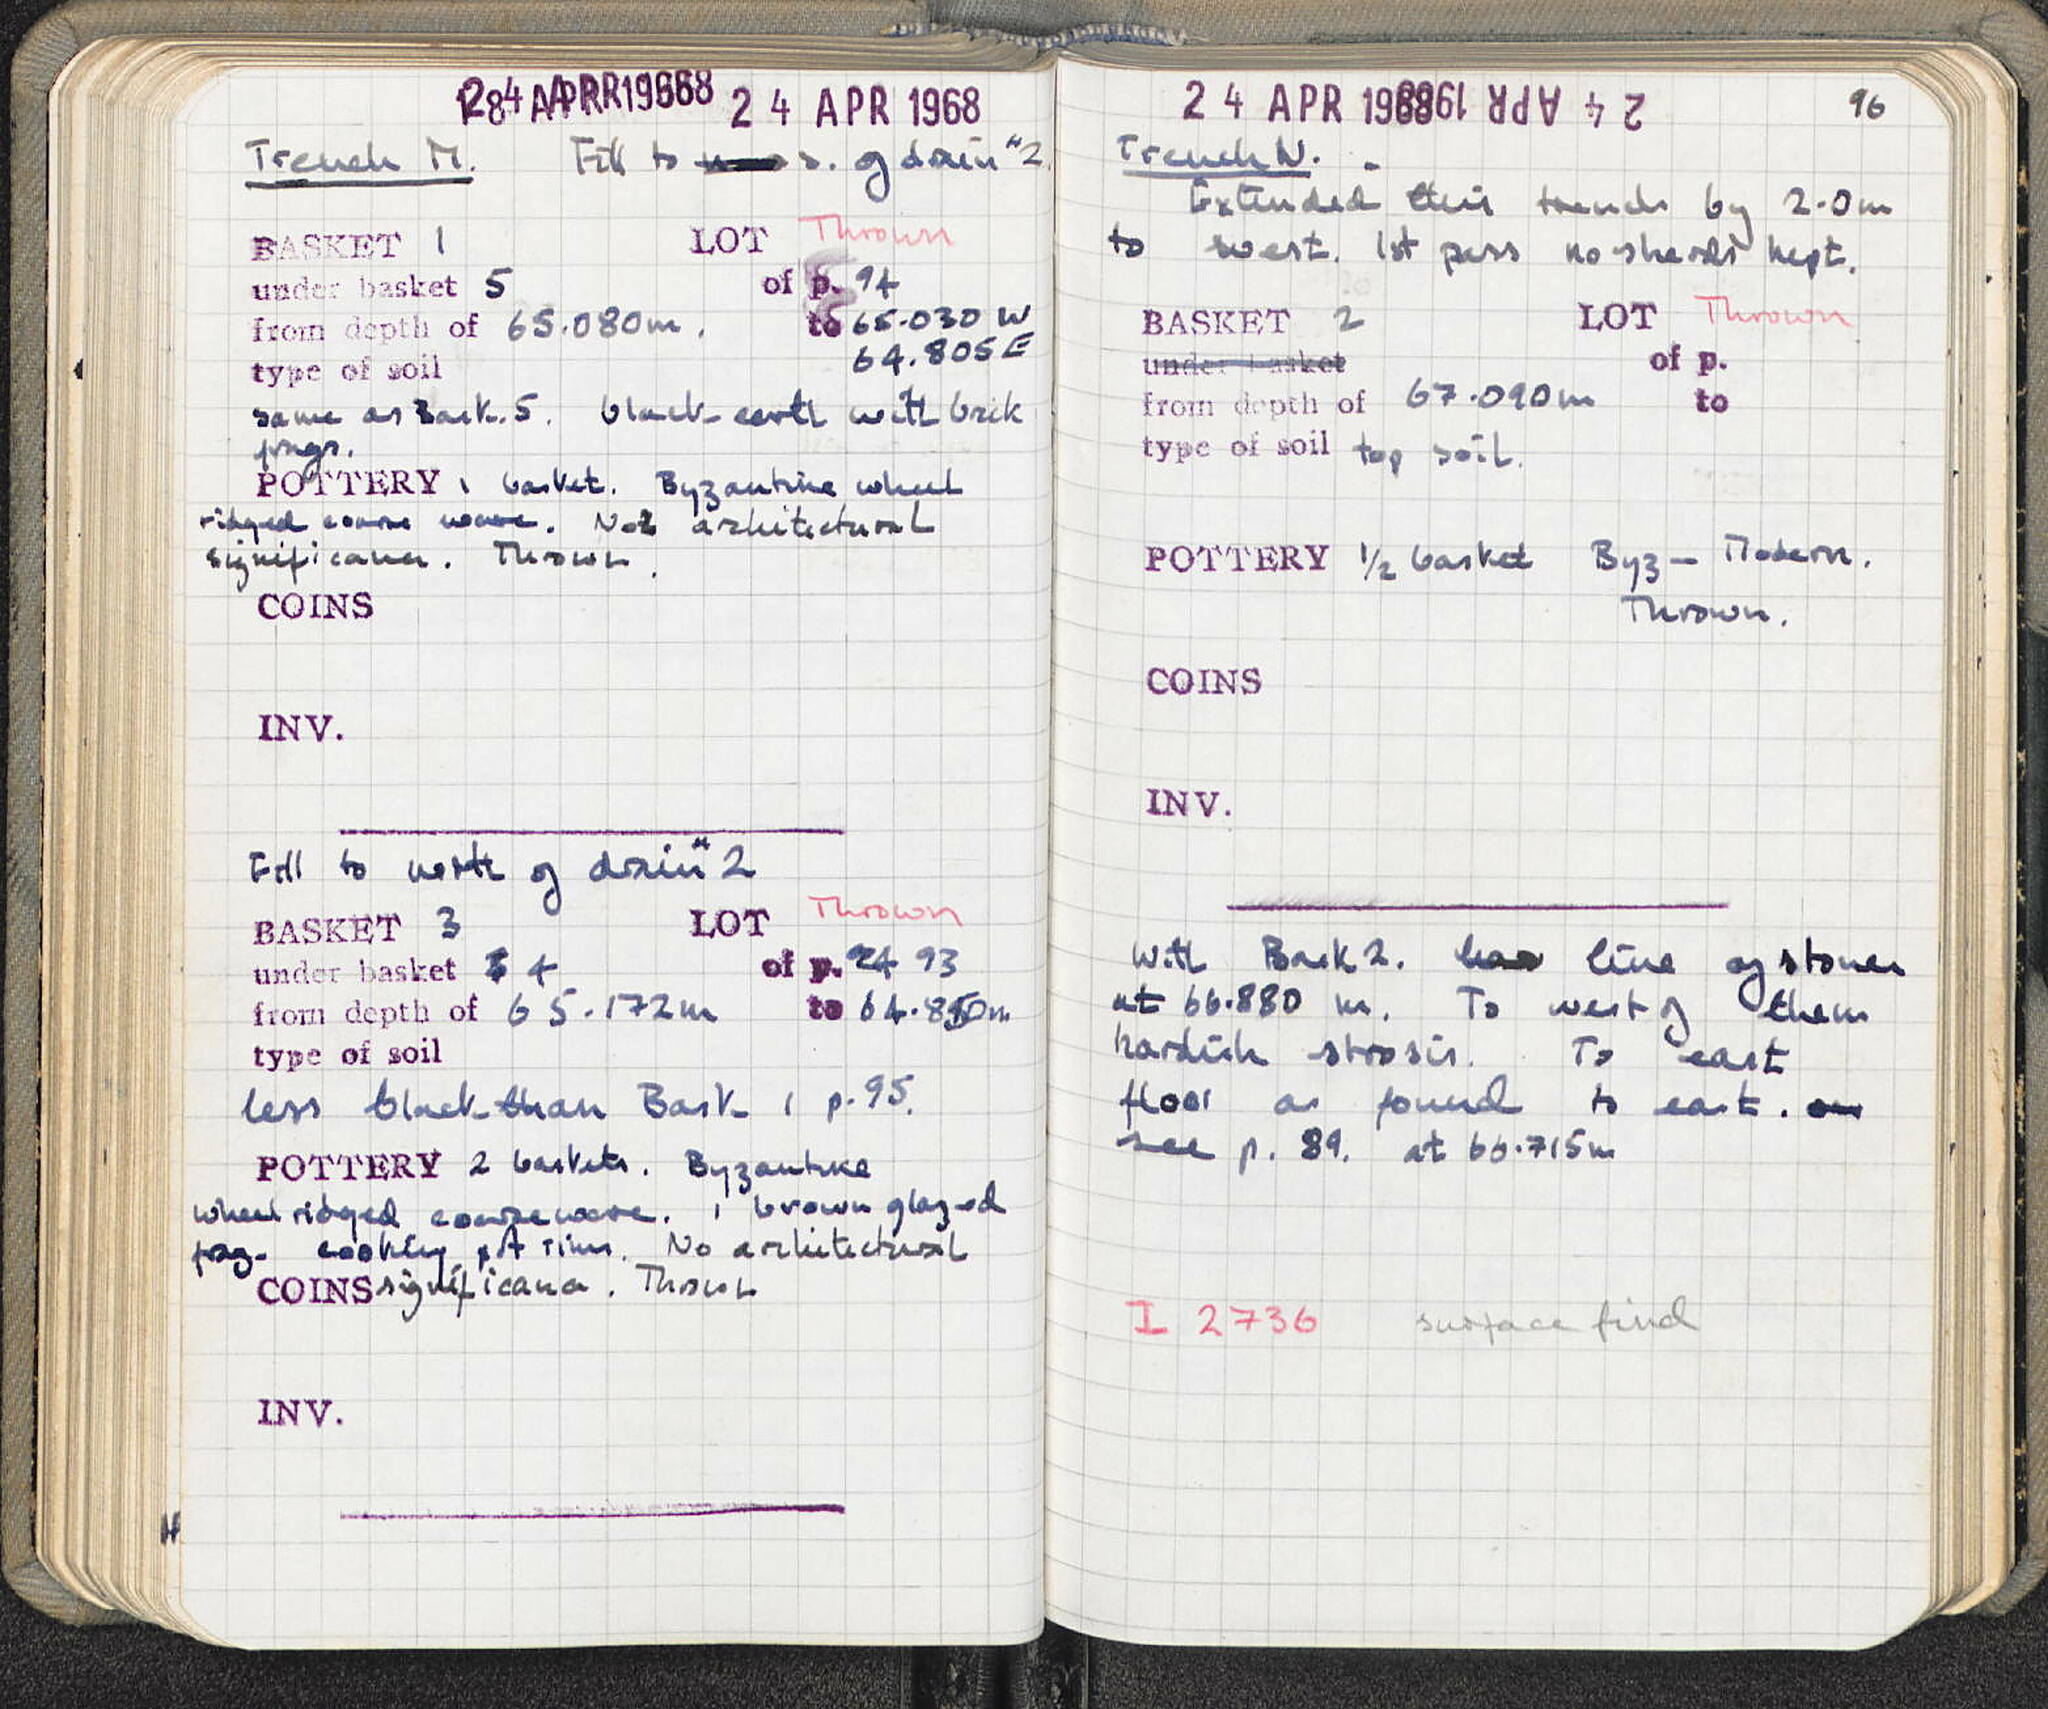 24 APR 1968 24 APR 1968
Trench M. Fill to s. of drain "2.
BASKET 1 LOT Thrown
under basket 5 of p. 94
from depth of 65.080m. to 65.030 W
64.805 E
type of soil
same as Bask. 5. black earth with brick
frags.
POTTERY 1 basket. Byzantine wheel
ridged coarse ware. Not architectural
significance. Thrown.
COINS
INV.
Fill to north of drain "2
BASKET 3 LOT Thrown
under basket 4 of p. 93
from depth of 65.172m to 64.850m
type of soil
less black than Bask 1 p. 95.
POTTERY 2 baskets. Byzantine
wheel ridged coarse ware. 1 brown glazed
frag. cooking pot rims. No architectural
COINS significance. Thrown
INV.
24 APR 1968 24 APR 1968 96
Trench N.
Extended this trench by 2.0m
to west. 1st pass no sherds kept.
BASKET 2 LOT Thrown
under basket of p.
from depth of 67.090m to
type of soil top soil.
POTTERY 1/2 basket Byz - Modern.
Thrown.
COINS
INV.
With Bask 2. line of stones
at 66.880 m. To west of them
hardish strosis. To east
floor as found to east.
see p. 89. at 66.715m
I 2736 surface find